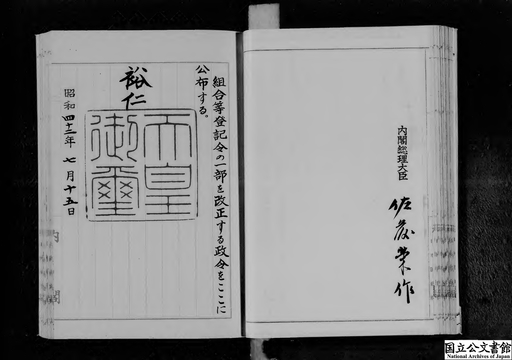 組合等登記令の一部を改正する政令をここに
公布する。
裕仁
天皇
御璽
昭和四十三年七月十五日
内閣総理大臣
佐藤榮作
国立公文書館
National Archives of Japan